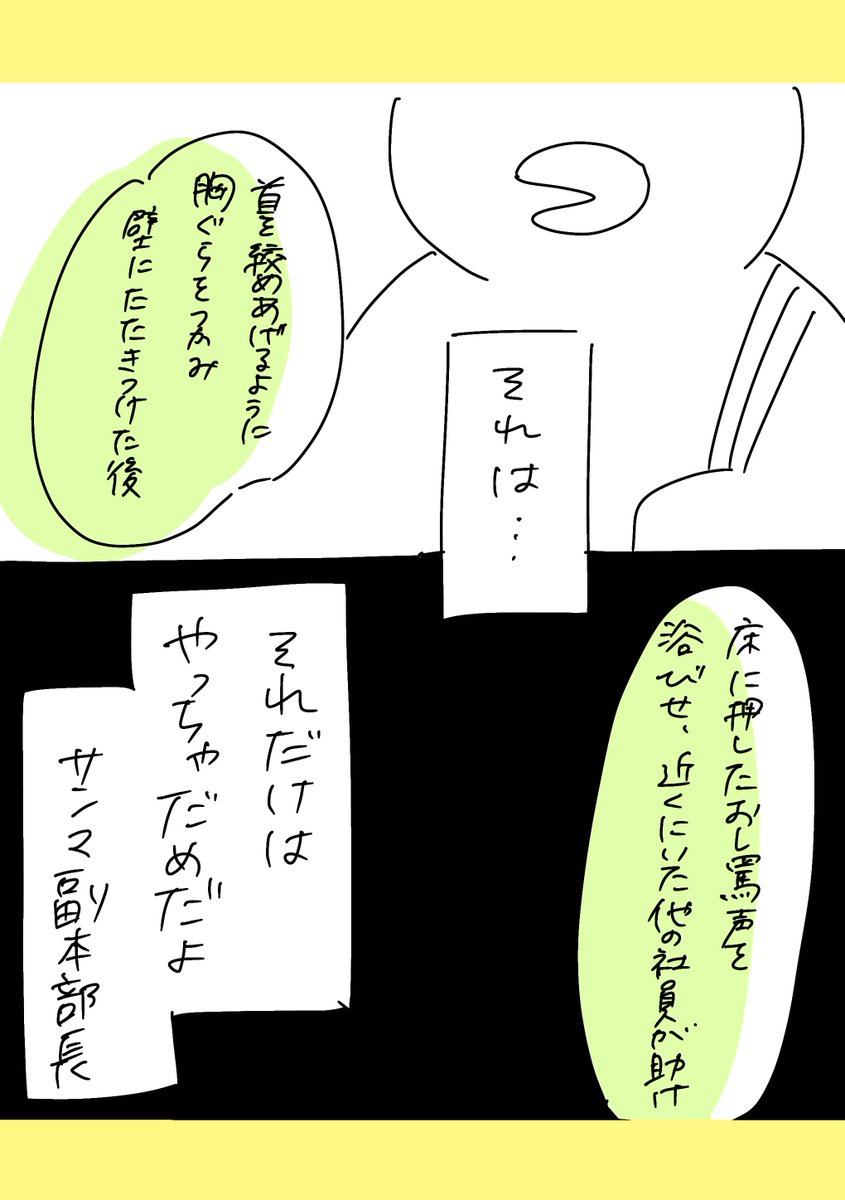 首を絞めあげるように
胸ぐらをつかみ
壁にたたきつけた後
それは…
床に押したおし罵声を
浴びせ、近くにいた他の社員が助け
それだけは
やっちゃだめだよ
サンマ副本部長